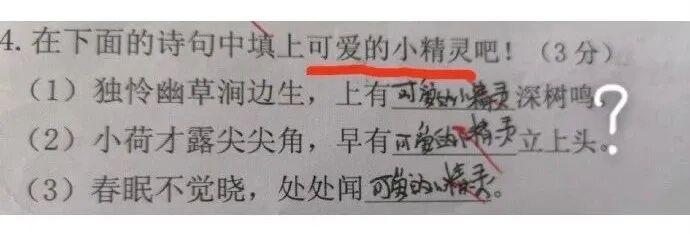 4.在下面的诗句中填上可爱的小精灵吧！（3分）
（1）独怜幽草涧边生，上有可爱的小精灵深树鸣。
（2）小荷才露尖尖角，早有可爱的小精灵立上头。?
（3）春眠不觉晓，处处闻可爱的小精灵。